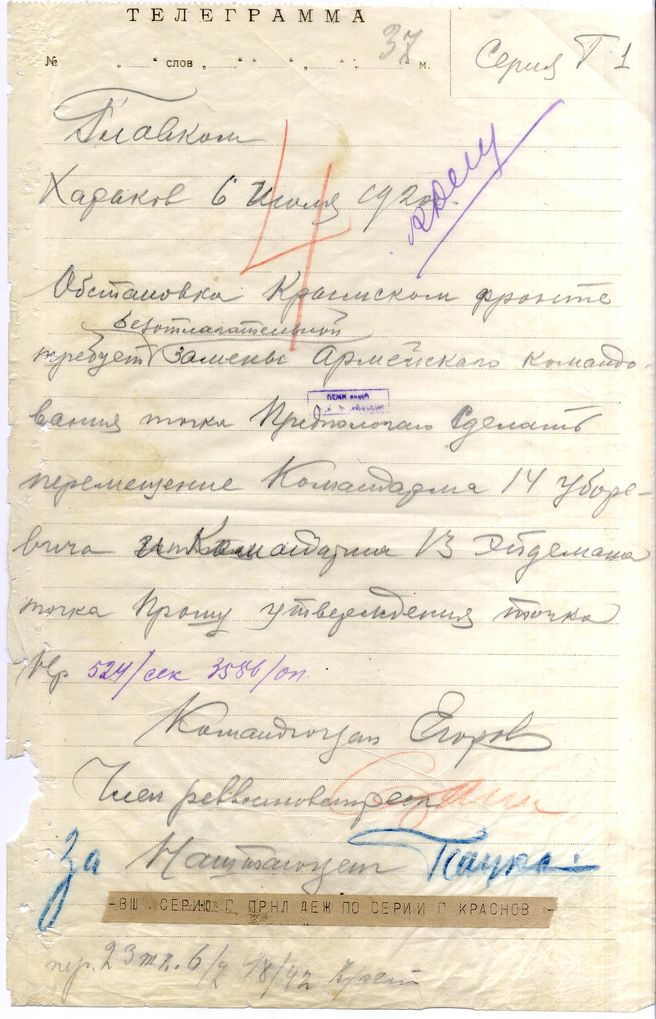 ТЕЛЕГРАММА
№ „ „ слов „ „ „ „ м.
37
Серия Г. 1
Главком
Харьков 6 Июля 1920г.
4
Обстановка Крымском фронте
безотлагательной
требует замены Армейского командо-
вания точка Предпологаю Сделать
перемещение Командарма 14 Уборе-
вича и Командарма 13 Эйдемана
точка Прошу утверждения точка
Нр 524/сек 3586/оп.
Командюгзап Егоров
Член реввоенсовет
За Наштаюгзап
-ВШ СЕРИЮ Г ПРНЛ ДЕЖ ПО СЕРИИ Г КРАСНОВ -
пер. 23 тл. 6/7 18/42